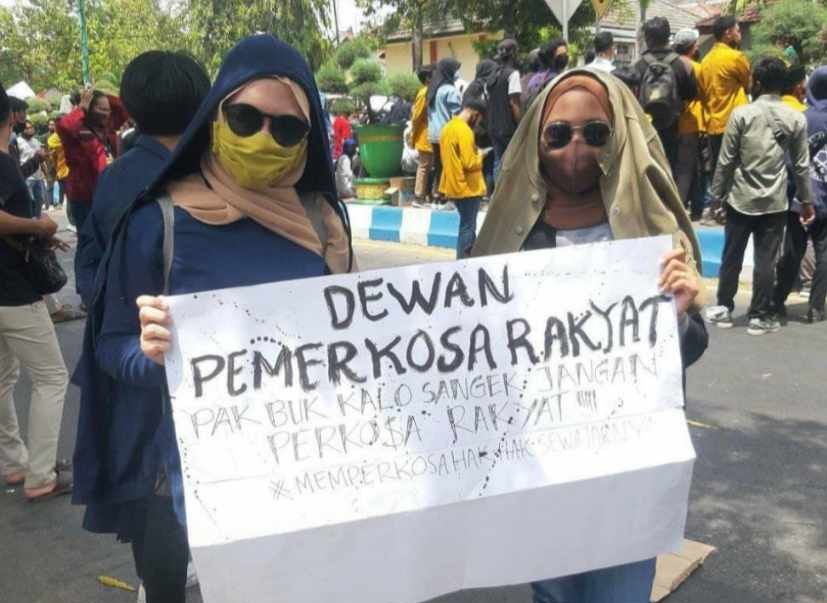 DEWAN
PEMERKOSA RAKYAT
PAK BUK KALO SANGEK JANGAN
PERKOSA RAKYAT !!!!
#MEMPERKOSA HAK-HAK